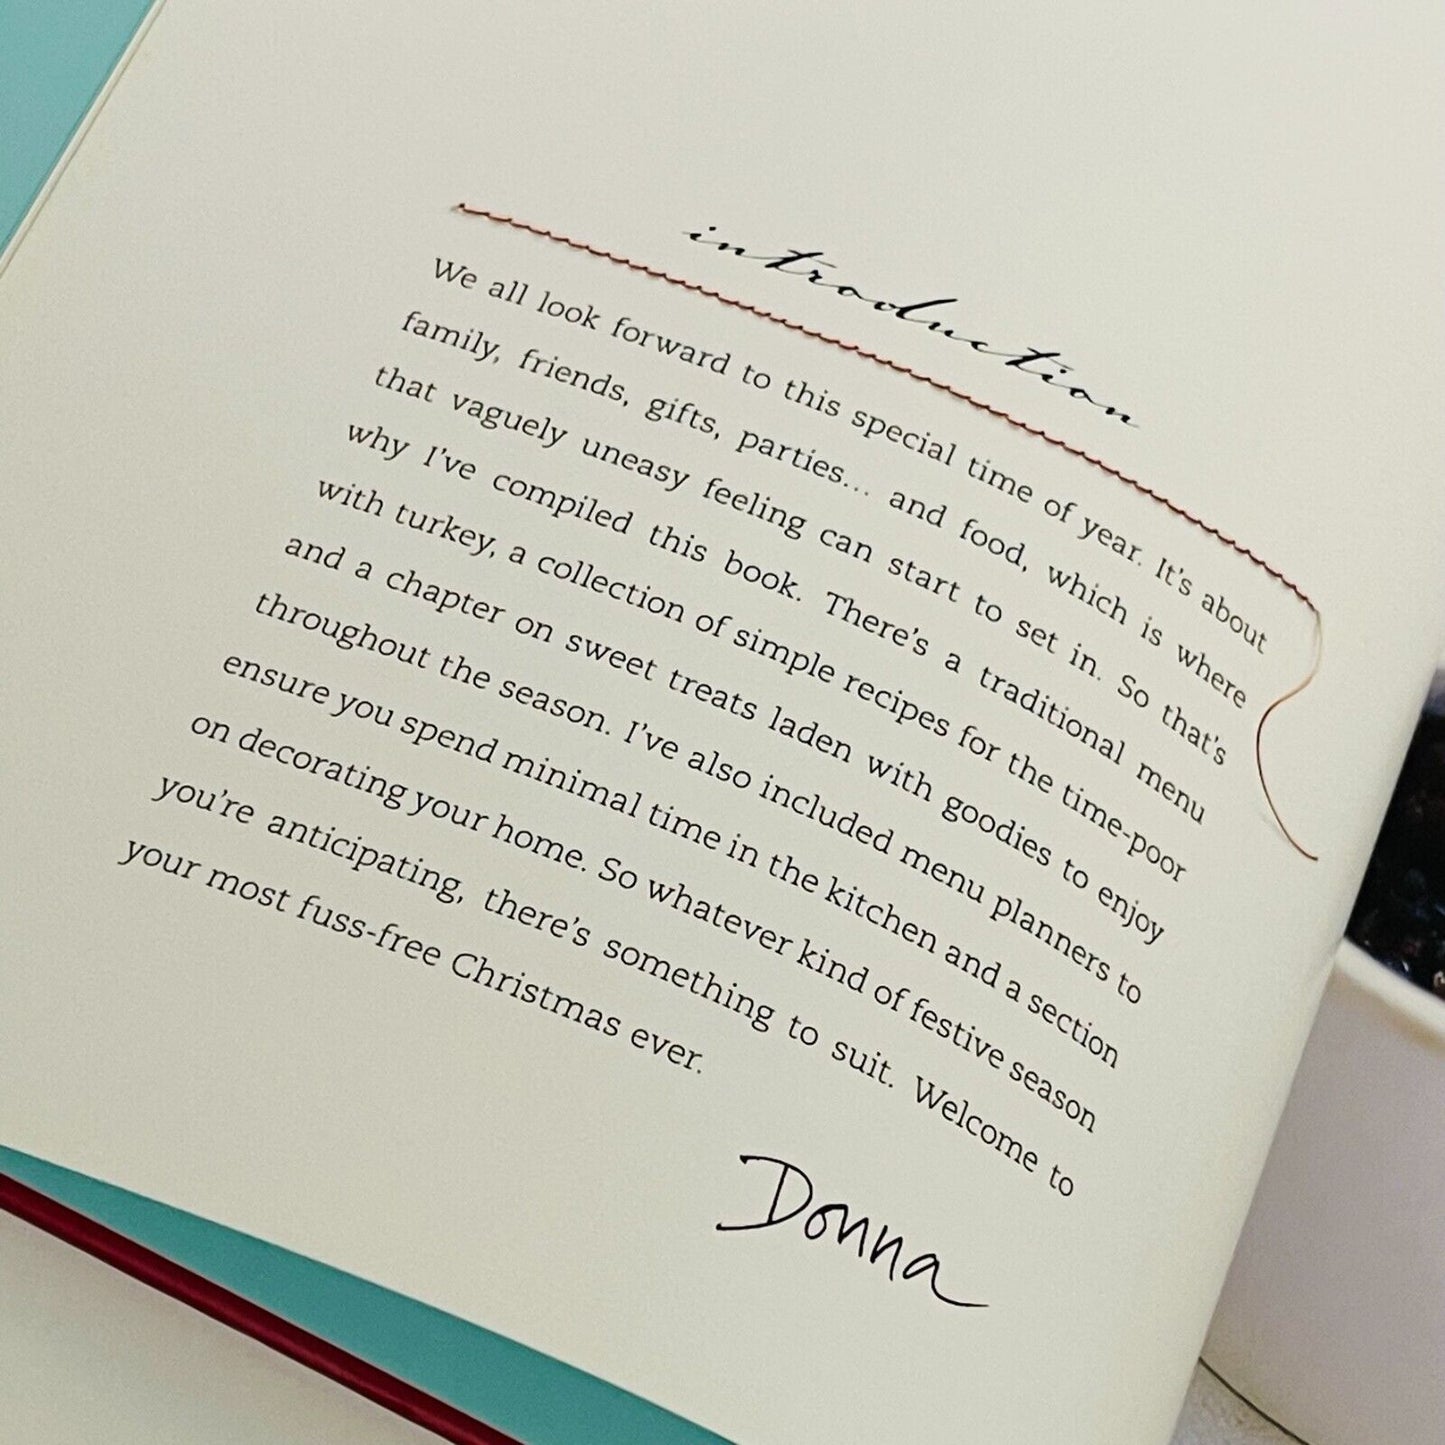 introduction
We all look forward to this special time of year. It's about
family, friends, gifts, parties... and food, which is where
that vaguely uneasy feeling can start to set in. So that's
why I've compiled this book. There's a traditional menu
with turkey, a collection of simple recipes for the time-poor
and a chapter on sweet treats laden with goodies to enjoy
throughout the season. I've also included menu planners to
ensure you spend minimal time in the kitchen and a section
on decorating your home. So whatever kind of festive season
you're anticipating, there's something to suit. Welcome to
your most fuss-free Christmas ever.
Donna